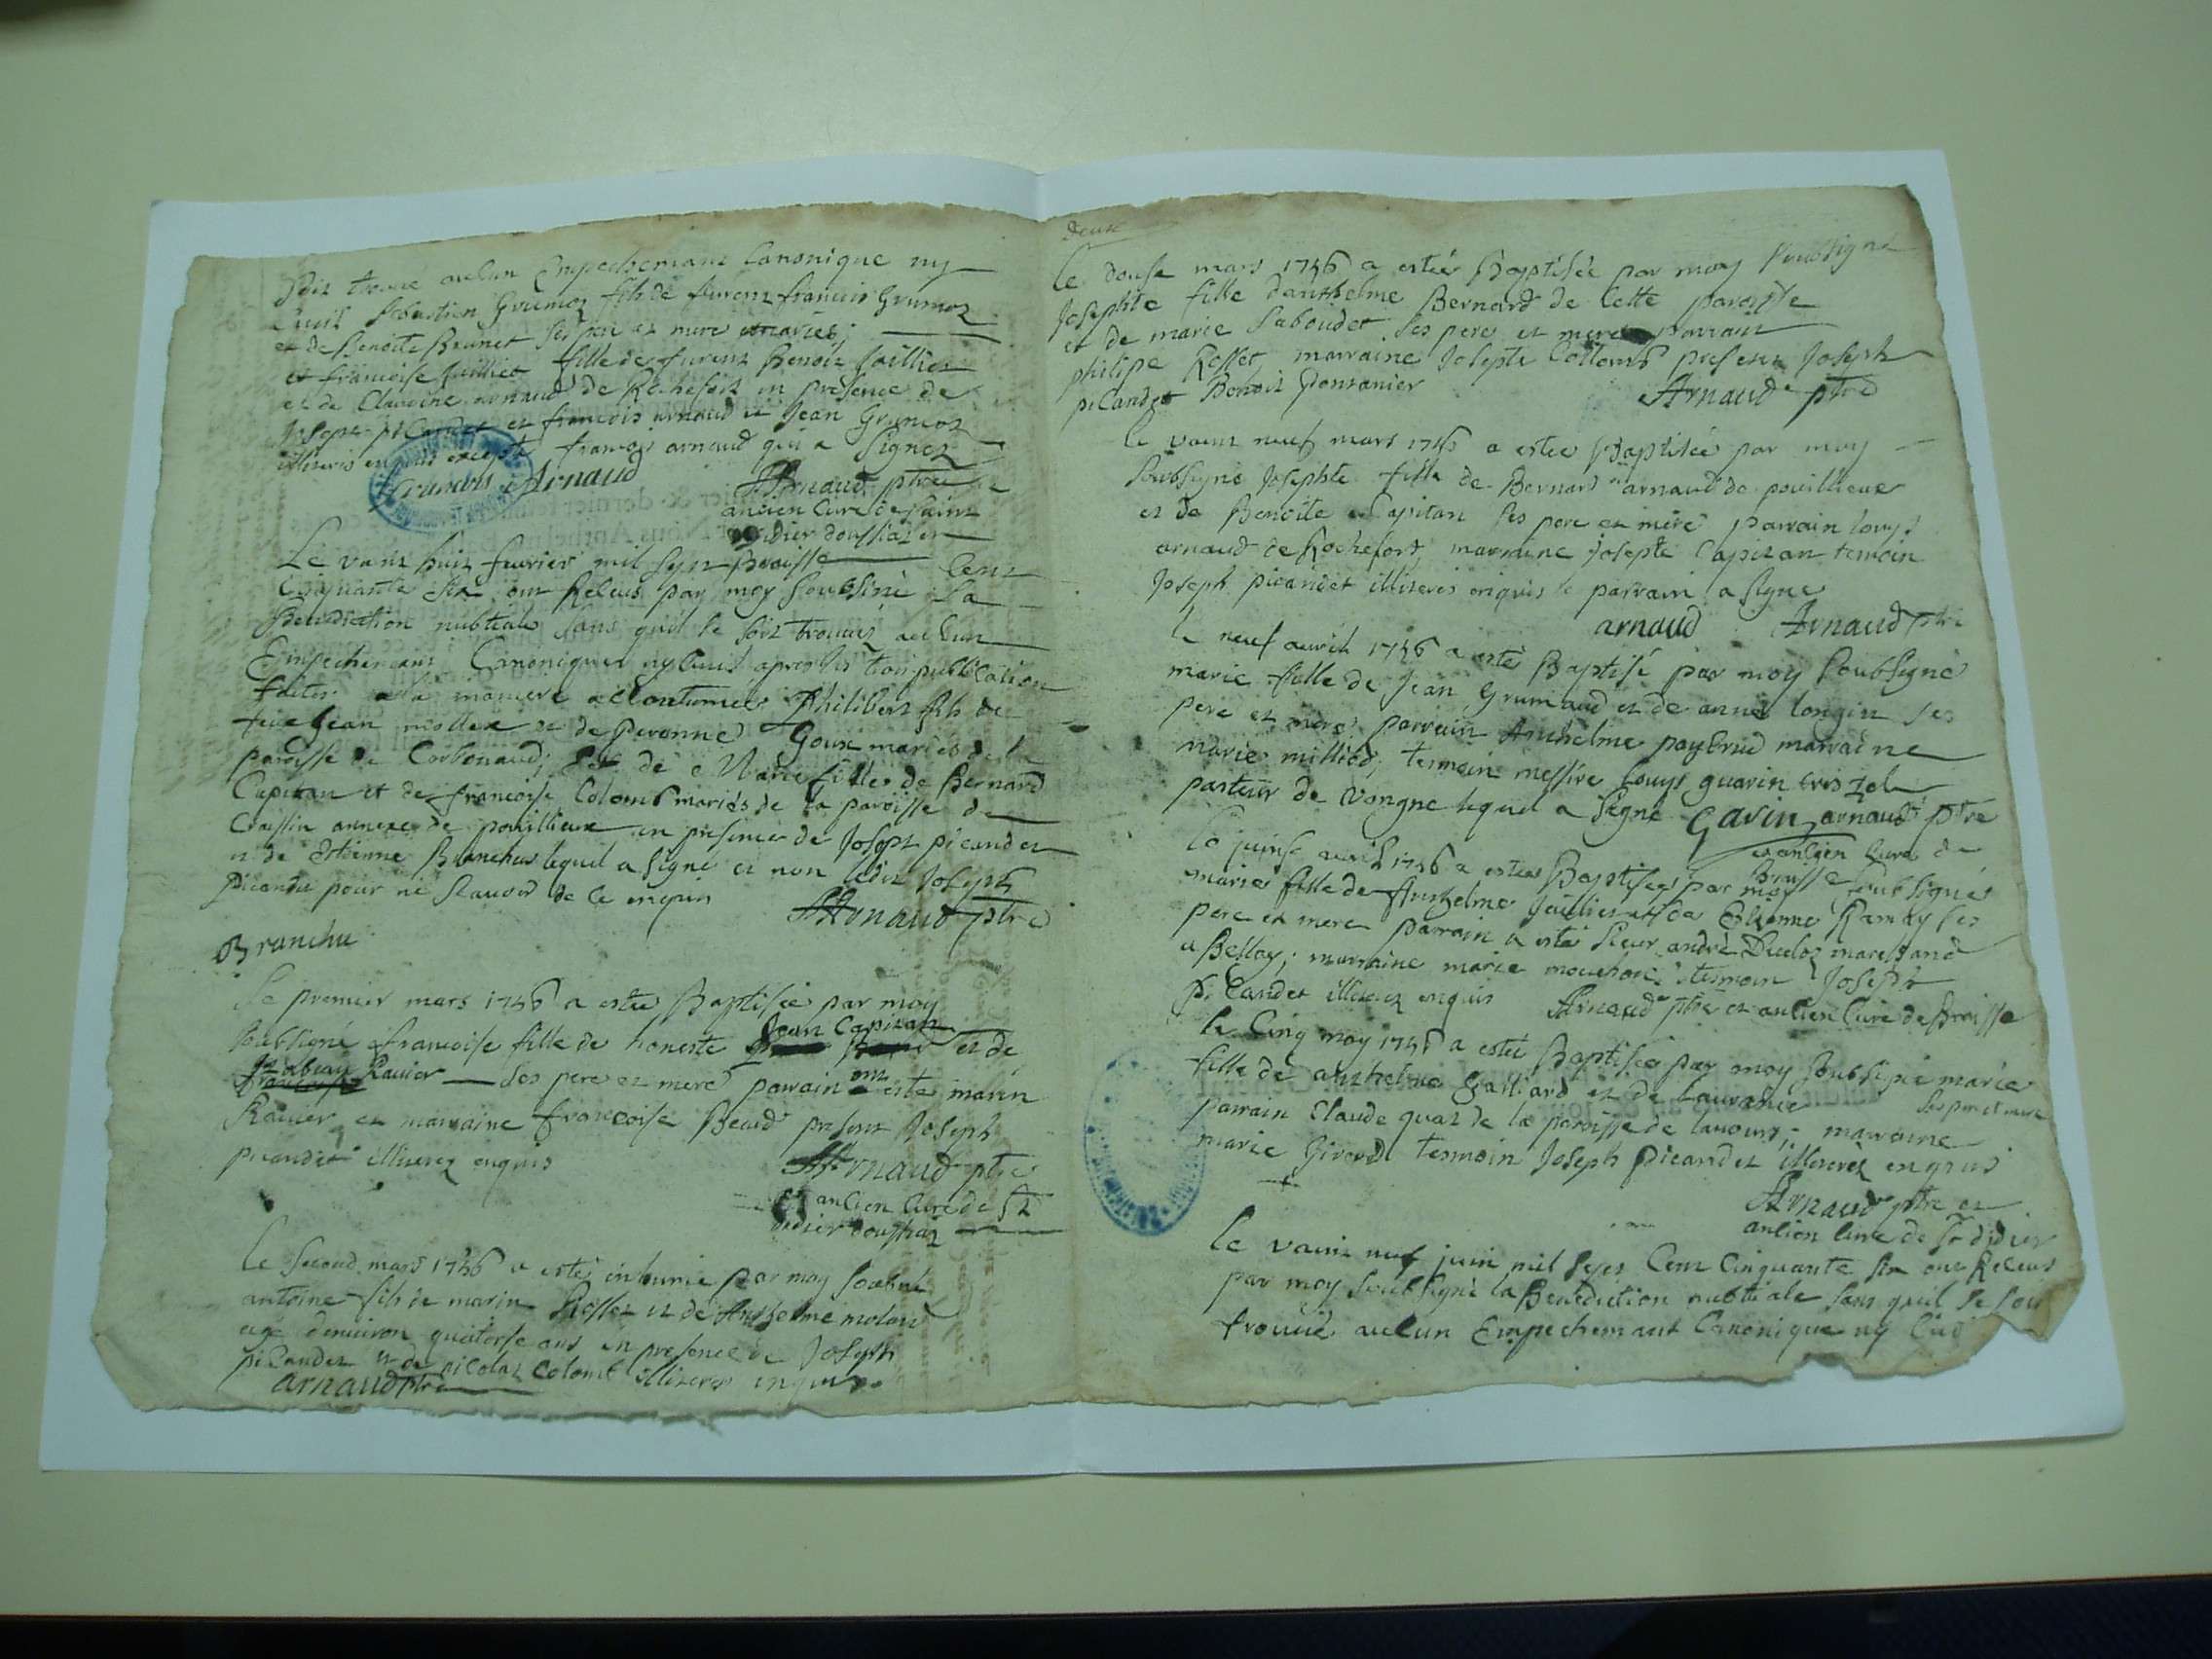 soit trouvé aucun Empechemant Canonique ny
Civil Sebastien Grumoz fils de furent francois Grumoz
et de Benoite Brunet ses pere et mere mariés;
et francoise Juilliet fille de furent Benoit Juillier
et de Claudine arnaud de Rochefort en presence de
Joseph picandet et francois arnaud et Jean Grumoz
illiteres enquis excepté francois arnaud qui a signez
francois Arnaud
Arnaud ptre
ancien Curé de saint
didier doussiaz en
Broisse
Le vaint huit fevrier mil sept Cent
Cinquante six ont Receus par moy soubsiné La
Benediction nubtiale sans qu'il se soit trouvez aucun
Empechemant Canoniques ny Civil apres les trois publication
faites a la maniere accoutumées Philibert fils de
feu Jean mollex et de peronne Goux mariés de la
paroisse de Corbonaud; et de Marie fille de Bernard
Capitan et de francoise Colomb mariés de la paroisse de
Cressin annexe de pouillieux en presence de Joseph picandet
et de Etienne Branchu lequel a signé et non ledit Joseph
picandet pour ne scavoir de ce enquis
Arnaud ptre
Branchu
Le premier mars 1756 a estée Baptisée par moy
soubsigné francoise fille de honeste Jean Capitan et de
Ravier ses pere et mere parrain ont esté marin
Ravier et marraine francoise Beaud present Joseph
picandet illiterez enquis
Arnaud ptre
et ancien Curé de St
didier doussiaz
Le second mars 1756 a esté inhumé par moy soubné
antoine fils de marin Rosset et de Anthelme molard
agé denviron quatorse ans en presence de Joseph
picandet et de nicolas Colomb illiteres enquis
arnaud ptre
deux
Le douse mars 1756 a estée Baptisée par moy soubsigné
Josephte fille danthelme Bernard de Cette paroisse
et de marie Saboudet ses pere et mere parrain
philipe Rosset marraine Josephte Collomb present Joseph
picandet Benoit
Arnaud ptre
le vaint neuf mars 1756 a estee Baptisée par moy
soubsigné Josephte fille de Bernard arnaud de pouillieux
et de Benoite Capitan ses pere et mere parrain louys
arnaud de Rochefort, marraine Josephte Capitan temoin
Joseph picandet illiterés enquis le parrain a signe
arnaud Arnaud ptre
le neuf avril 1756 a esté Baptisé par moy soubsigné
marie fille de Jean Grumaud et de anne longin ses
pere et mere parrain Anthelme paybrud marraine
marie milliod; temoin messire louys guarin
pasteur de vongne lequel a signé Gavin arnaud ptre
et ancien Curé de
Brusse
le quinse avril 1756 a estée Baptisée par moy soubsigné
marie fille de Anthelme Juillier et de Etienne Ramby ses
pere et mere parrain a esté sieur andré Duclos marchand
a Belley; marraine marie mouchon temoin Joseph
picandet illiterez enquis Arnaud ptre et ancien Curé de Broisse
le Cinq may 1756 a estée Baptisée par moy soubsigné marie
fille de anthelme Galliard et de laurance ses pere et mere
parrain Claude quaz de la paroisse de lavours; marraine
marie Girerd temoin Joseph picandet illiterez enquis
Arnaud ptre et
ancien Curé de St didier
Le vaint neuf juin mil sept Cent Cinquante six ont Receus
par moy soubsigné la Benediction nubtiale sans quil se soit
trouvé aucun Empechemant Canonique ny Civil